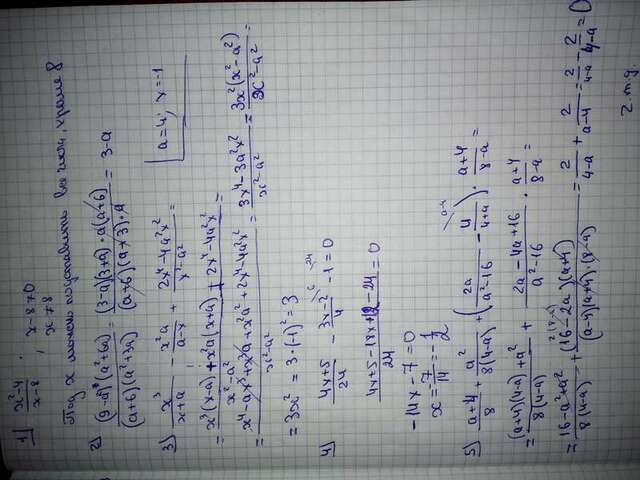 1) (x²-4)/(x-8) ; x-8≠0
x≠8
Под x можно подставить все числа, кроме 8
2) (9-a²)(a²+6a)/((a+6)(a²+3a)) = (3-a)(3+a)·a(a+6)/((a+6)(a+3)·a) = 3-a
3) x³/(x+a) - x²a/(a-x) + (2x⁴-4a²x²)/(x²-a²) = a=4; x=-1
= (x³(x-a)+x²a(x+a)+2x⁴-4a²x²)/(x²-a²) =
= (x⁴-ax³+x³a+x²a²+2x⁴-4a²x²)/(x²-a²) = (3x⁴-3a²x²)/(x²-a²) = 3x²(x²-a²)/(x²-a²) =
= 3x² = 3·(-1)² = 3
4) (4x+5)/24 - (3x-2)/4 \6 - 1 \24 = 0
(4x+5-18x+12-24)/24 = 0
-14x-7=0
x = -7/14 = -1/2
5) (a+4)/8 + a²/(8(4-a)) + (2a/(a²-16) - 4/(4+a) \a-4) · (a+4)/(8-a) =
= ((a+4)(4-a)+a²)/(8(4-a)) + (2a-4a+16)/(a²-16) · (a+4)/(8-a) =
= (16-a²+a²)/(8(4-a)) + 2(8-a) (16-2a)(a+4)/((a-4)(a+4)·(8-a)) = 2/(4-a) + 2/(a-4) = 2/(4-a) - 2/(4-a) = 0
г.т.д.